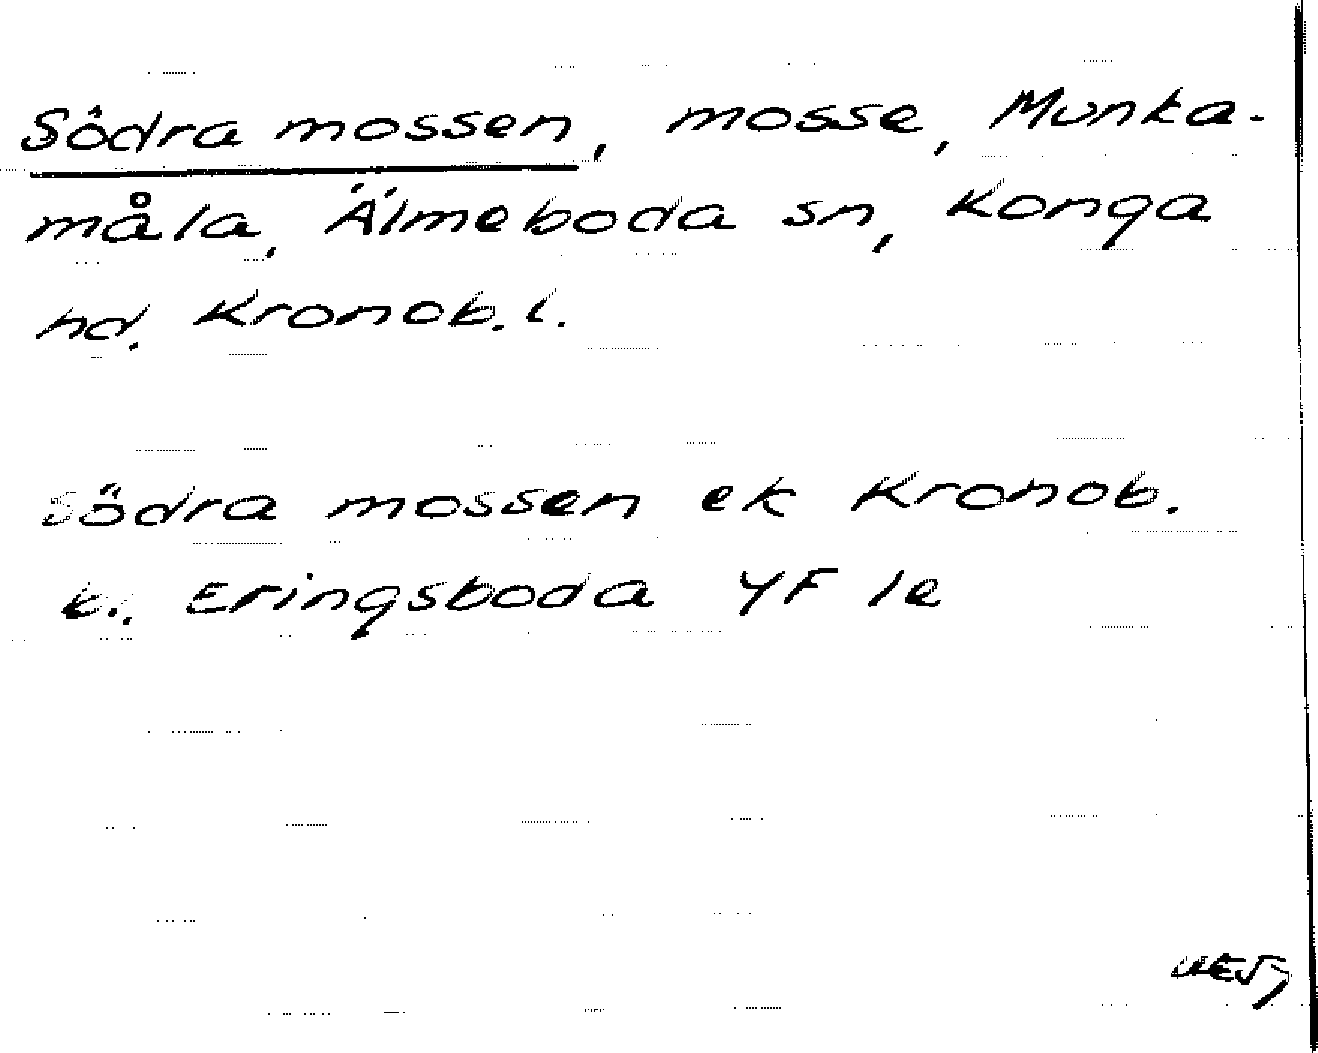 Södra mossen, mosse, Munka-
måla, Älmeboda sn, Konga
hd. Kronob. l.
Södra mossen ek Kronob.
bl. Eringsboda YF le